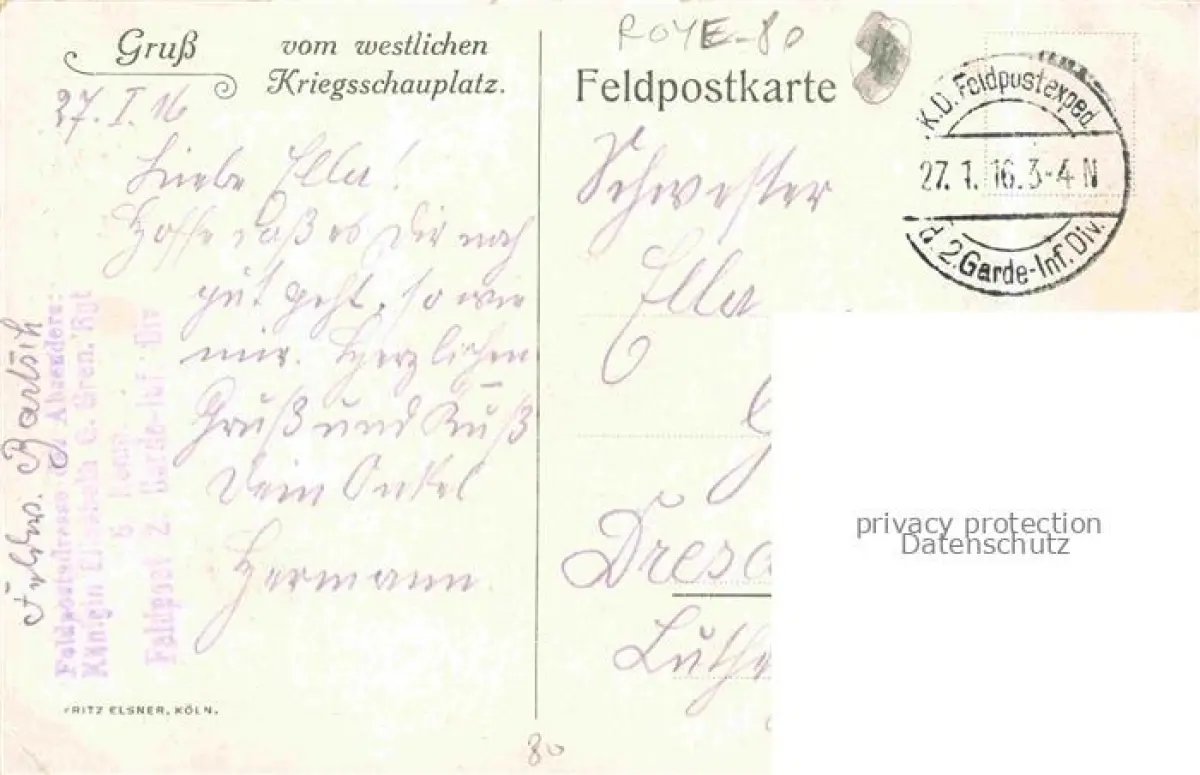 Gruß vom westlichen
Kriegsschauplatz.
27. I. 16
Liebe Ella!
Hoffe daß es Dir noch
gut geht, so wie
mir. Herzlichen
Gruß und Kuß
Dein Onkel
Hermann.
Bartsch
Feldpostadresse des Absenders:
Königin Elisabeth G. Gren. Rgt
6 Komp.
Feldpost 2. Garde-Inf. Div
FRITZ ELSNER, KÖLN.
80
ROYE-80
Feldpostkarte
K.D. Feldpostexped.
27. 1. 16. 3-4 N
d. 2. Garde-Inf. Div.
Schwester
Ella
Dresd
Luthe
privacy protection
Datenschutz